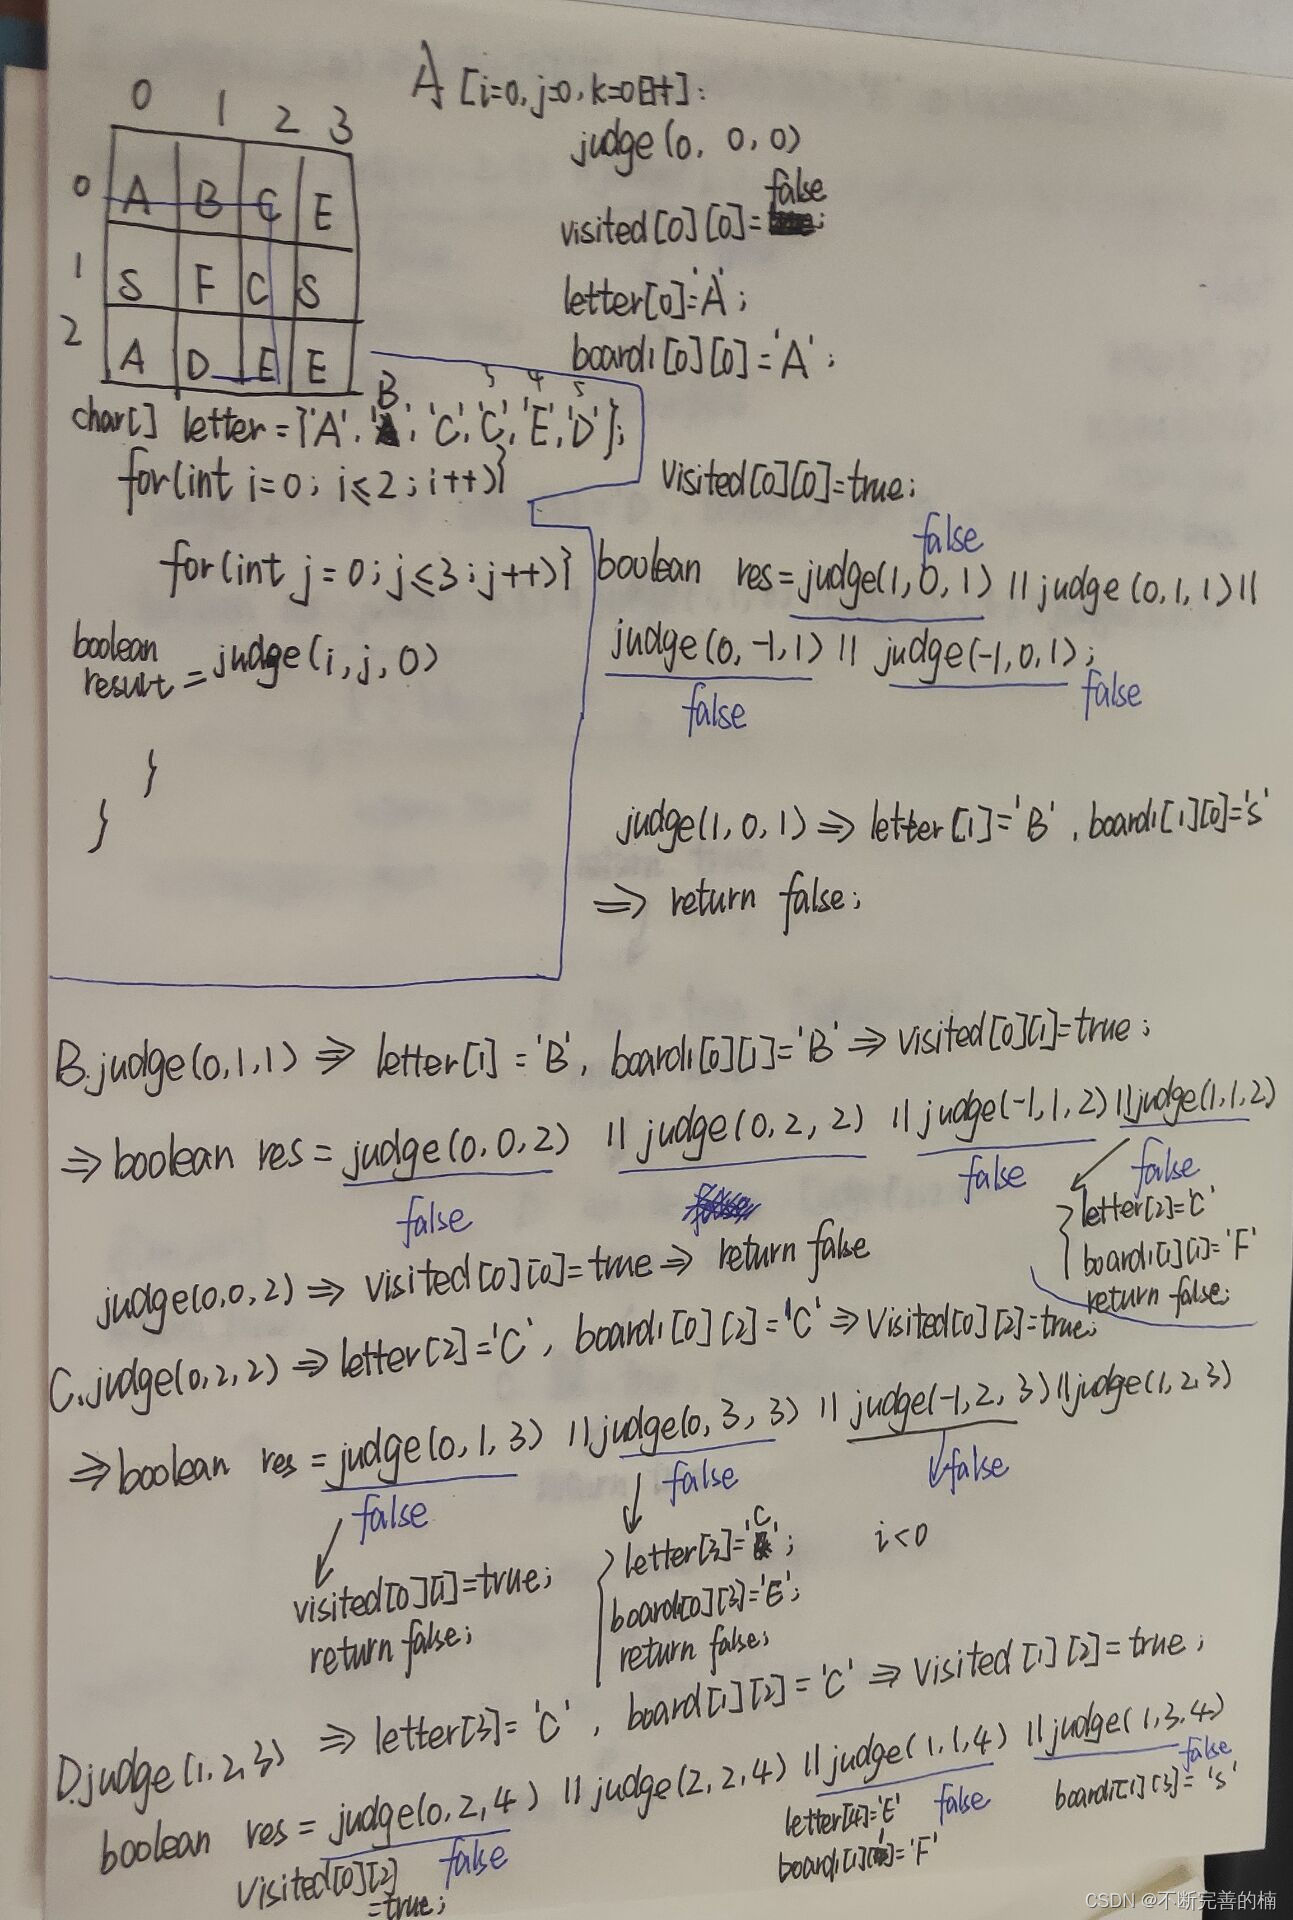 0 1 2 3
0 A B C E
1 S F C S
2 A D E E
A [i=0, j=0, k=0时]:
judge(0, 0, 0)
false
visited[0][0]=
letter[0]='A';
board1[0][0]='A';
B 3 4 5
char[] letter={'A', ' ', 'C','C','E','D'};
for(int i=0; i≤2; i++){
for(int j=0; j≤3; j++){
boolean result = judge(i, j, 0)
}
}
visited[0][0]=true;
false
boolean res=judge(1, 0, 1) || judge(0, 1, 1) ||
judge(0, -1, 1) || judge(-1, 0, 1);
false false
judge(1, 0, 1) => letter[1]='B', board1[1][0]='S'
=> return false;
B.judge(0,1,1) => letter[1]='B', board1[0][1]='B' => visited[0][1]=true;
=> boolean res = judge(0, 0, 2) || judge(0, 2, 2) || judge(-1, 1, 2) || judge(1, 1, 2)
false false false false
letter[2]='C'
board1[1][1]='F'
return false;
judge(0,0,2) => visited[0][0]=true => return false
C.judge(0,2,2) => letter[2]='C', board1[0][2]='C' => Visited[0][2]=true;
=> boolean res = judge(0, 1, 3) || judge(0, 3, 3) || judge(-1, 2, 3) || judge(1, 2, 3)
false false false
visited[0][1]=true;
return false;
letter[3]='C';
board[0][3]='E';
return false;
i<0
D.judge(1,2,3) => letter[3]='C', board[1][2]='C' => visited[1][2]=true;
boolean res = judge(0, 2, 4) || judge(2, 2, 4) || judge(1, 1, 4) || judge(1, 3, 4)
false false false
Visited[0][2]
=true;
letter[4]='E'
board1[1][1]='F'
board1[1][3]='S'
CSDN @不断完善的楠